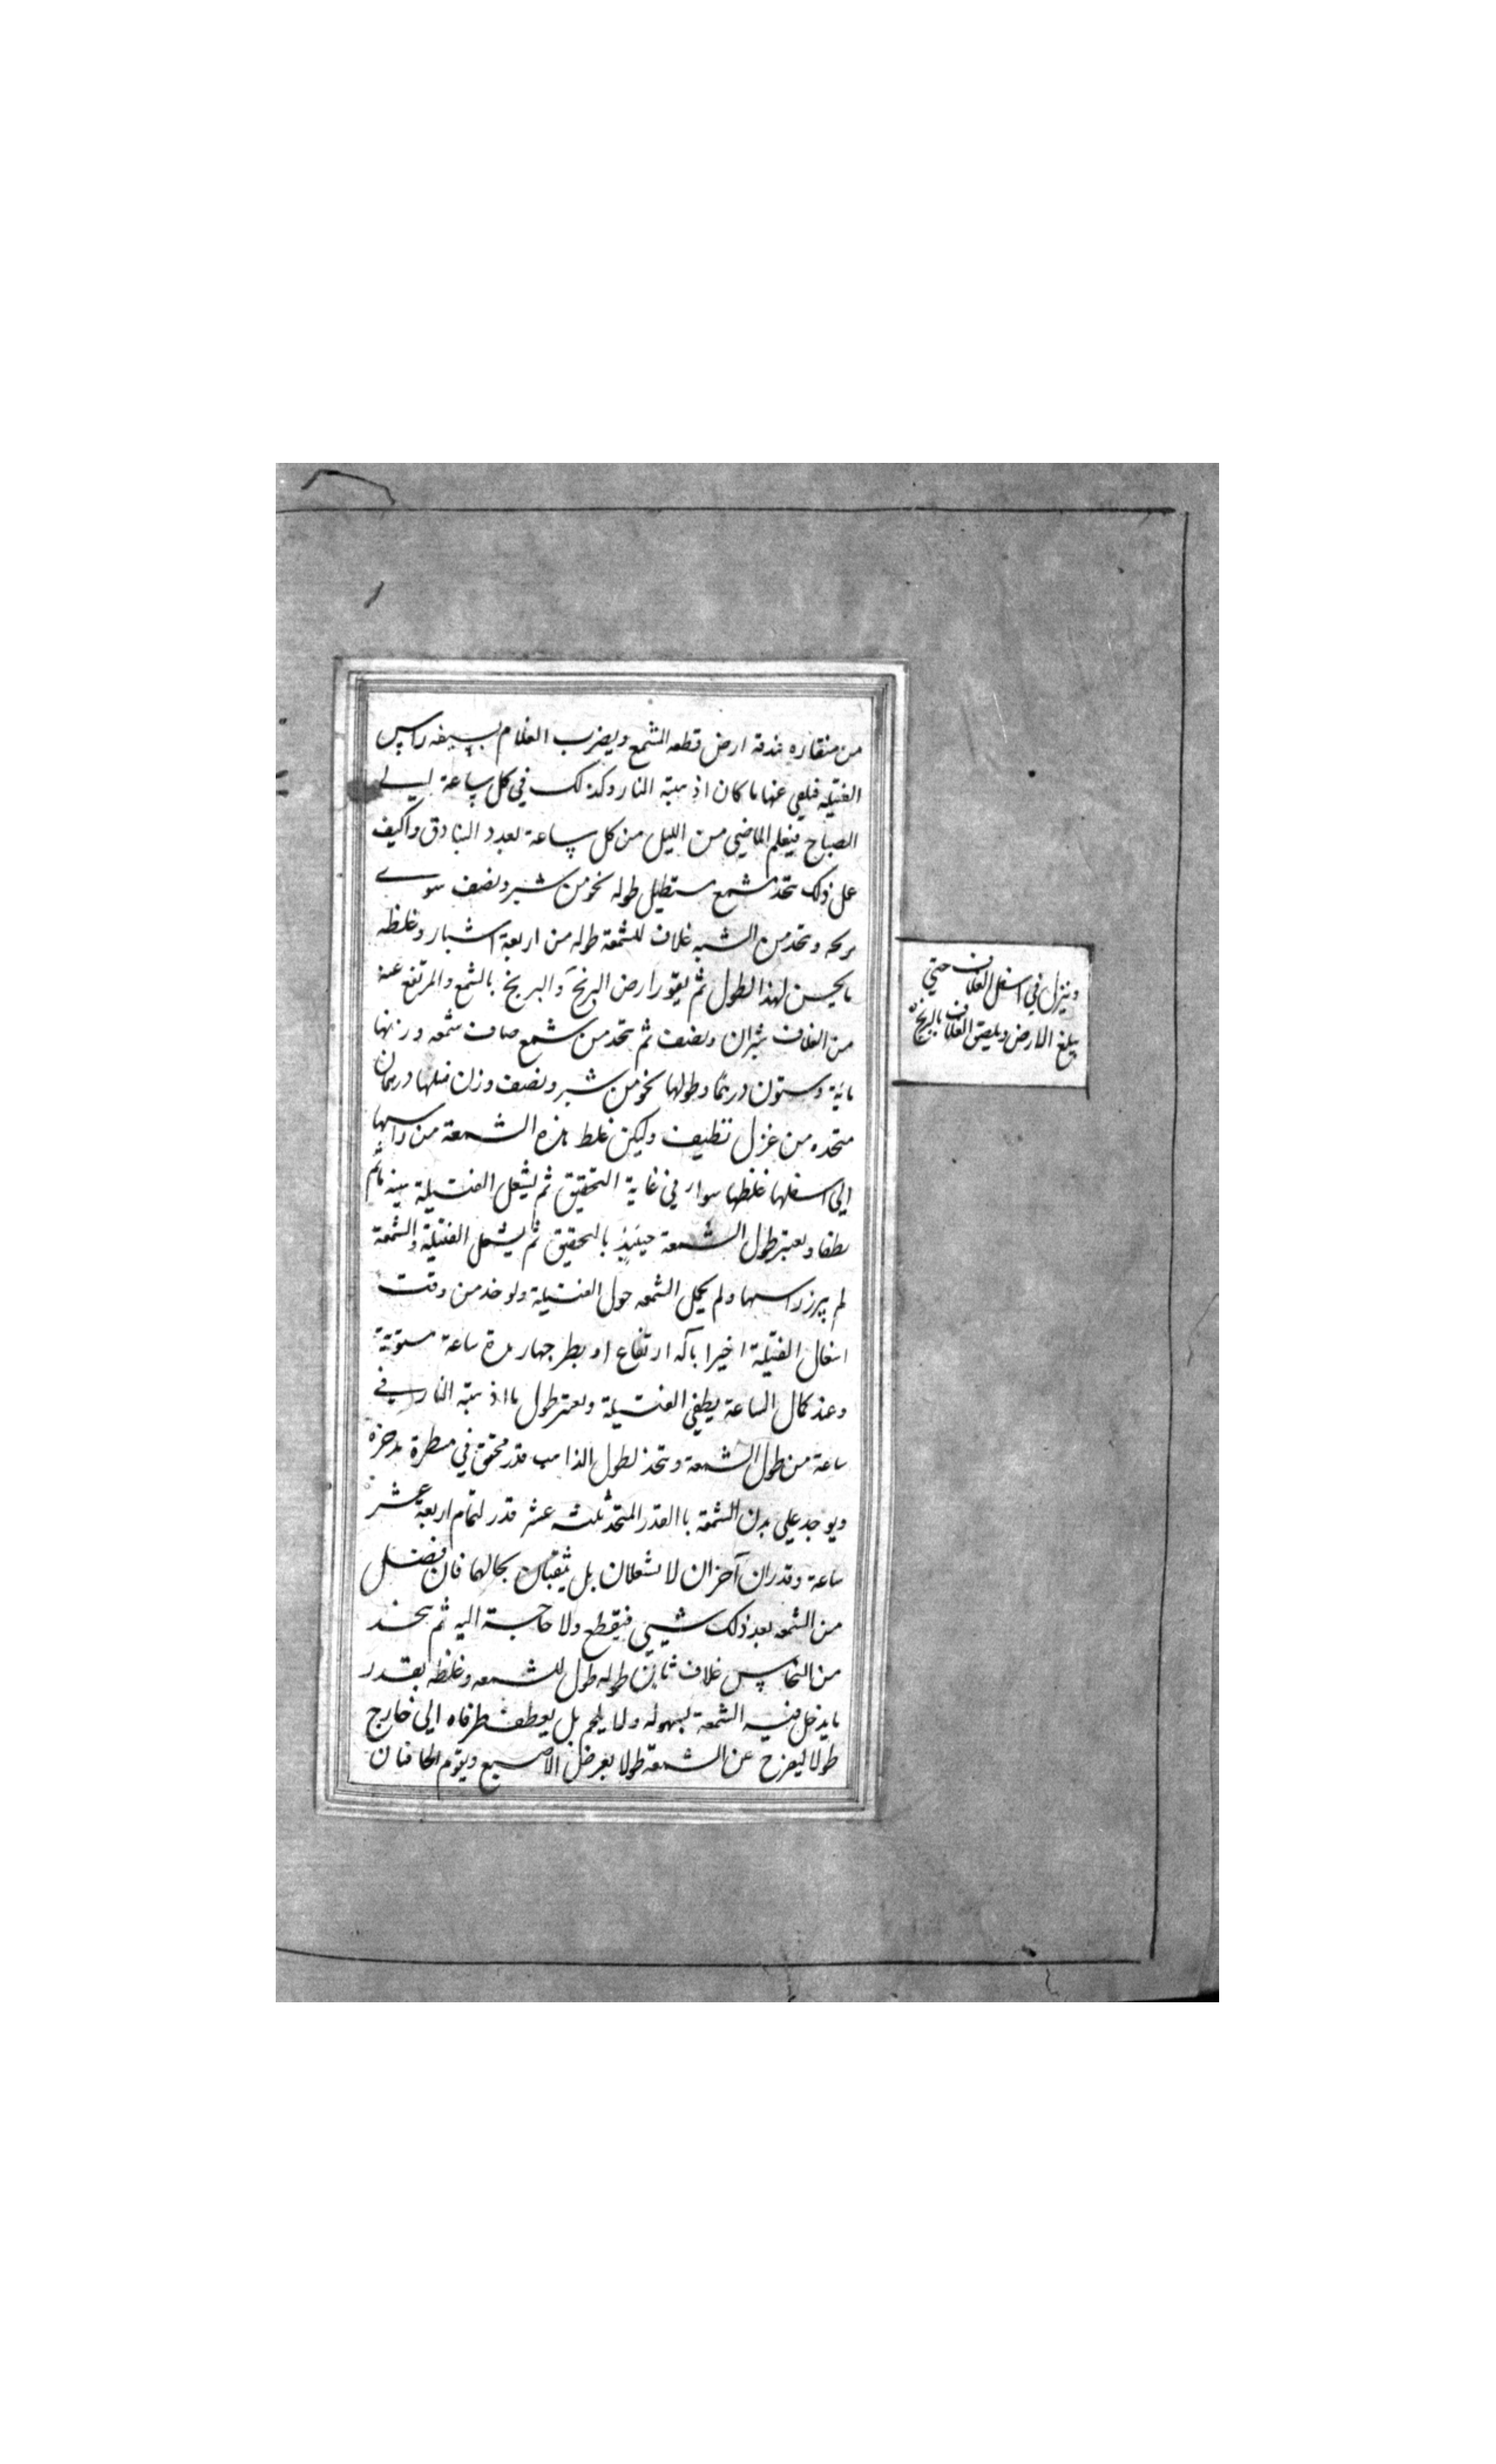 من منقاره بندقة ارض قطعه الشمع ويضرب الغلام بسيفه راس
الفتيله فيلقي عنها ما كان اذهبته النار وكذلك في كل ساعة الى
الصباح فيعلم الماضي من الليل من كل ساعة بعدد البنادق واكيف
عمل ذلك يتخذ شمع مستطيل طوله نحو من شبر ونصف سوى
برجه ويتخذ من الشبه غلاف للشمعة طوله من اربعة اشبار وغلظه
ما يحسن لهذا الطول ثم يقور ارض البرنج والبرنج بالشمع والمرتفع عنه
من الغلاف شبران ونصف ثم يتخذ من شمع صاف شمعه وزنها
ماية وستون درهما وطولها نحو من شبر ونصف وزن فتيلها درهمان
متخذه من غزل نظيف وليكن غلظ هذه الشمعة من راسها
الى اسفلها غلظها سواء في غاية التحقيق ثم يشعل الفتيلة هنيئة ثم
يطفا ويعتبر طول الشمعة حينئذ بالتحقيق ثم يشعل الفتيلة والشمعة
لم يبرز راسها ولم يحمل الشمعه حول الفتيلة ولوخذ من وقت
اشعال الفتيلة اخيرا بآلة ارتفاع او بطرجهار مدة ساعة مستوية
وعند كمال الساعة يطفي الفتيلة ويعتبر طول ما اذهبته النار في
ساعة من طول الشمعة ويتخذ لطول الذاهب قدر محقق في مسطرة مدخرة
ويوجد على بدن الشمعة بالقدر المتخذ ثلثة عشر قدر لتمام اربعة عشر
ساعة وقدران آخران لا تشعلان بل يثقبان بحالهما فان فضل
من الشمعه بعد ذلك شيي فيقطع ولا حاجة اليه ثم يتخذ
من النحاس غلاف ثان طوله طول للشمعه وغلظه بقدر
ما يدخل فيه الشمعة بسهولة ولا يلحم بل يعطف طرفاه الى خارج
طولا ليفرج عن الشمعة طولا بعرض الاصبع ويقوم الحافتان
وينزل في اسفل الغلاف حتى
يبلغ الارض ويلصق الغلاف بالبرنج